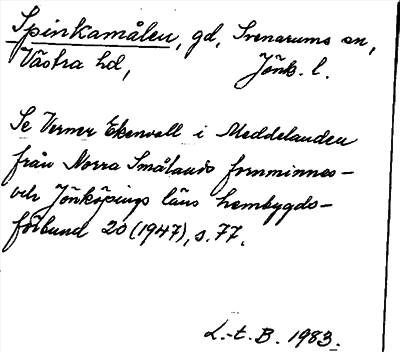 Spinkamålen, gd, Svenarums sn,
Västra hd, Jönk. l.
Se Verner Ekenvall i Meddelanden
från Norra Smålands fornminnes-
och Jönköpings läns hembygds-
förbund 20 (1947), s. 77.
L.-t. B. 1983.